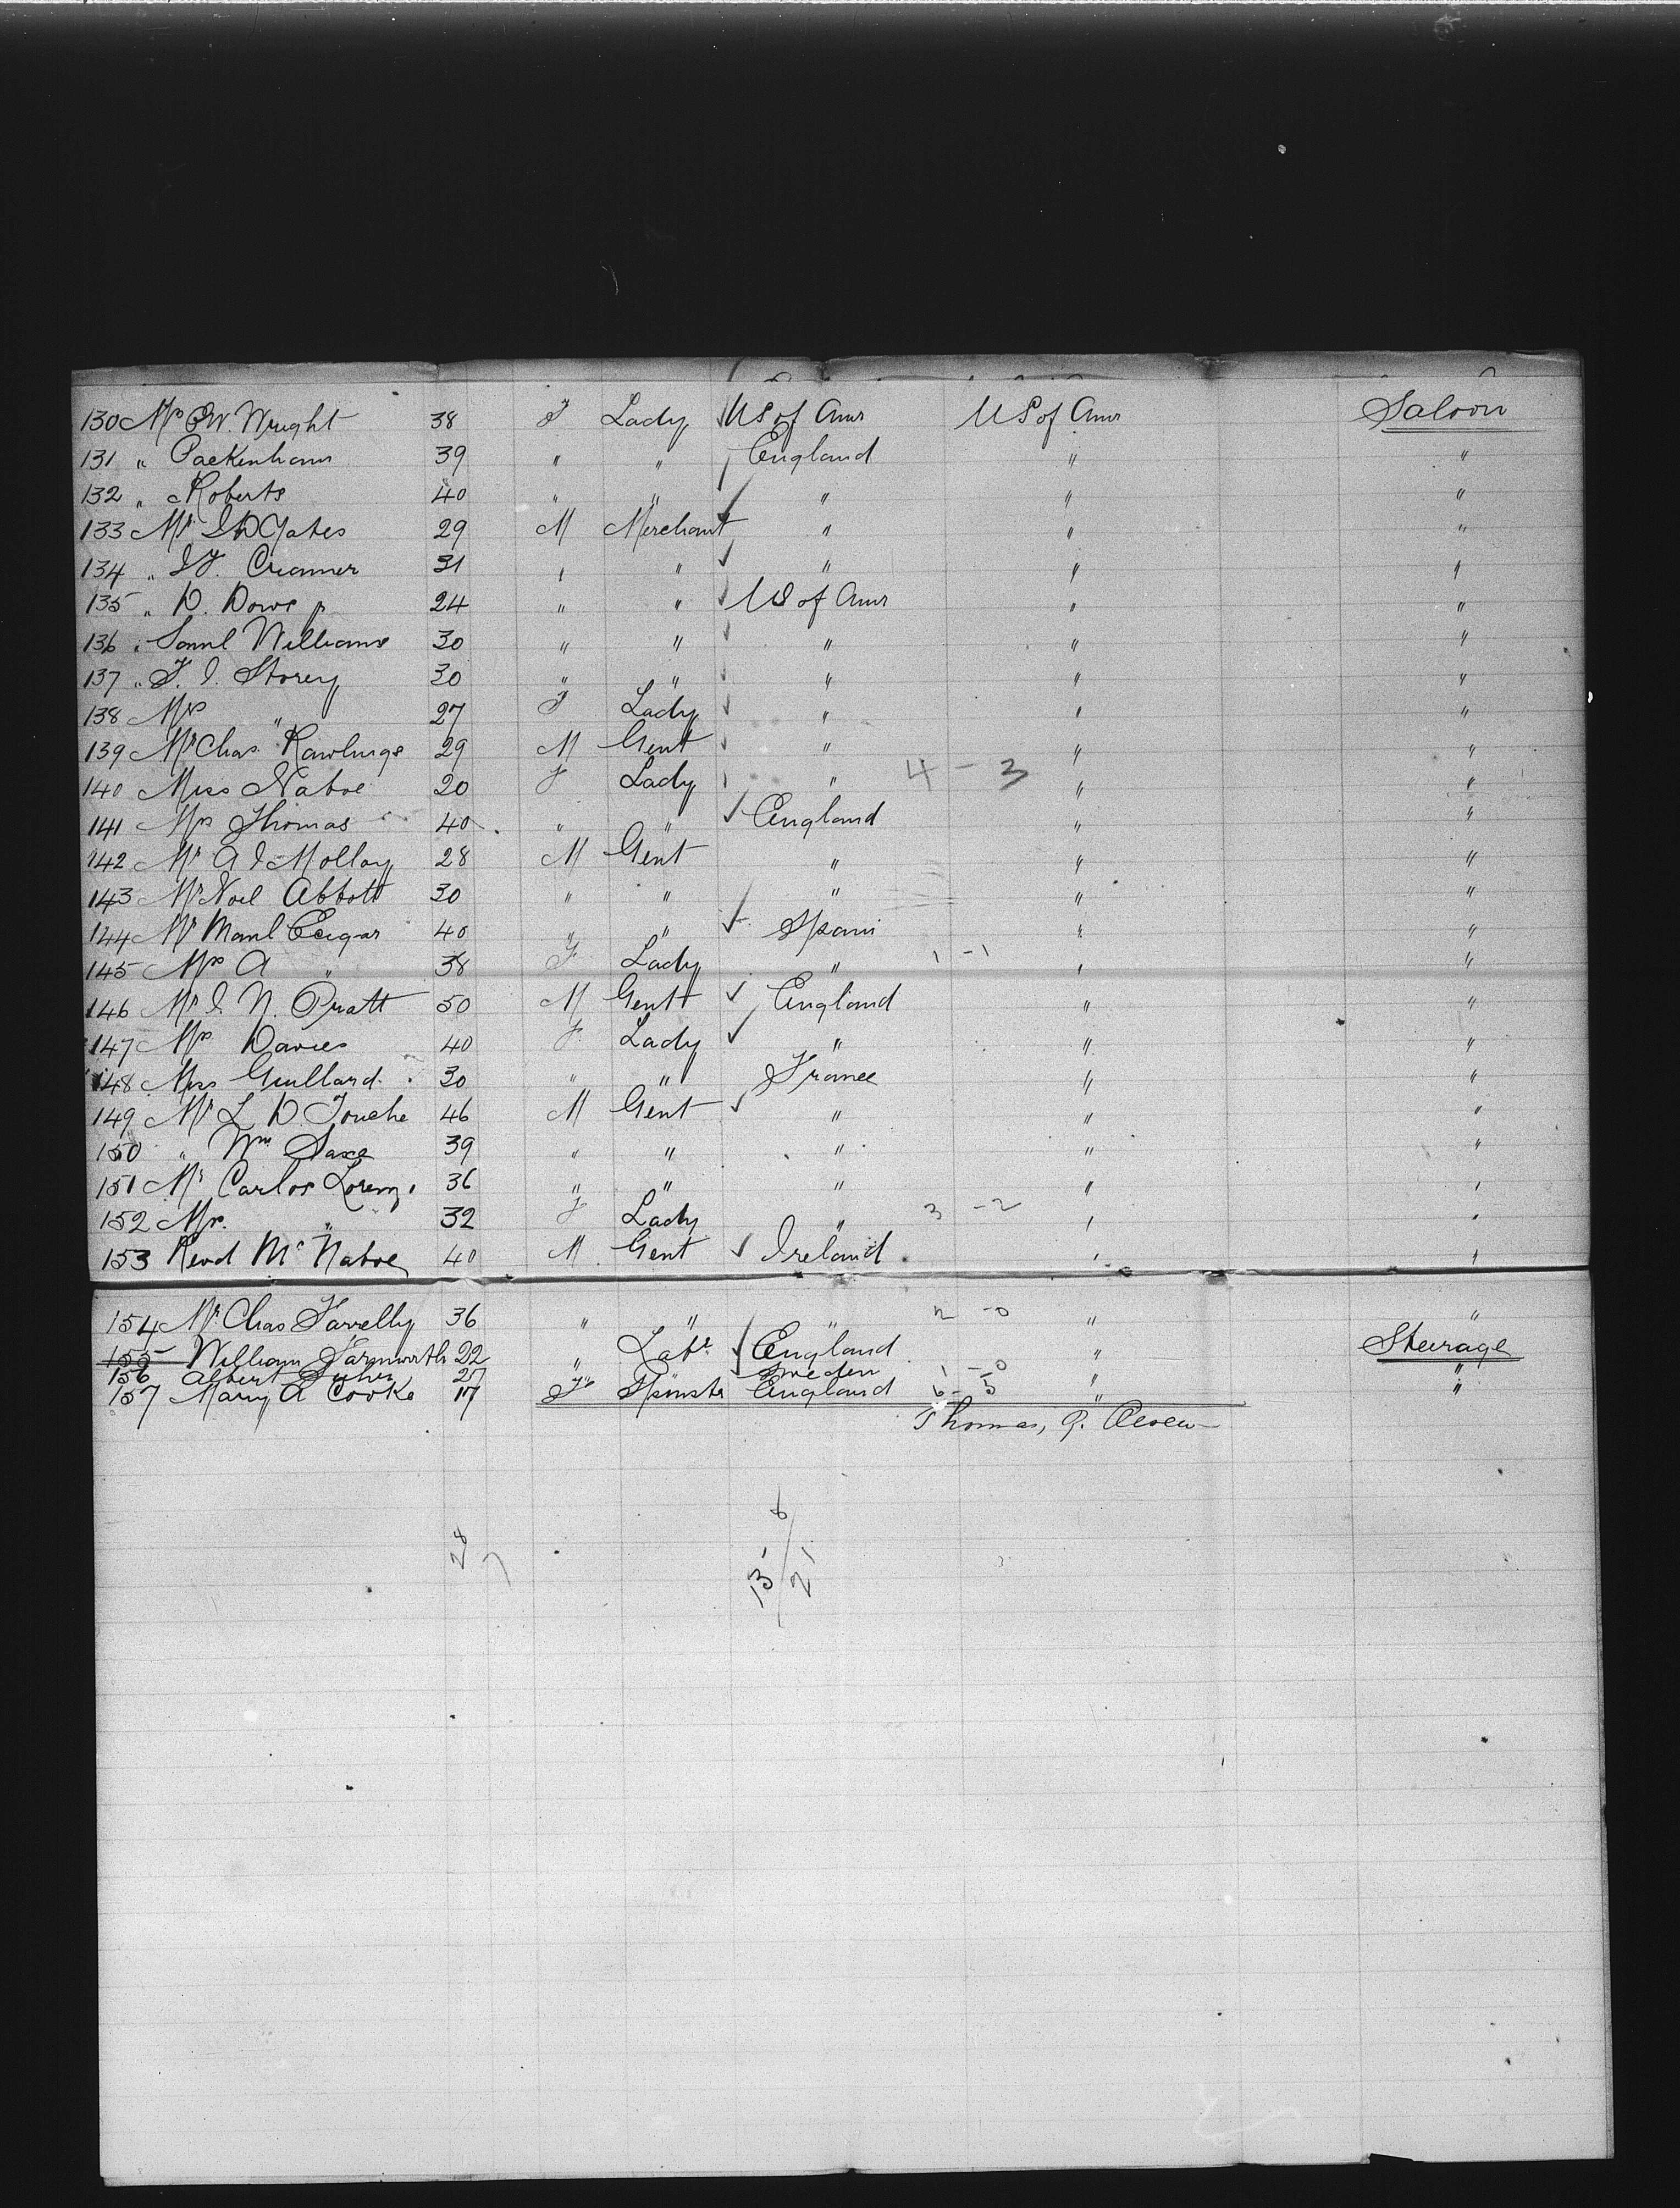 130 Mrs W. Wright 38 F Lady US of Amr US of Amr Saloon
131 " Packenham 39 " " England " "
132 " Roberts 40 " " " " "
133 Mr Yates 29 M Merchant " " "
134 " J F. Cranmer 31 " " " " "
135 " D. Dows jr 24 " " US of Amr " "
136 " Saml Williams 30 " " " " "
137 " F. J. Storey 30 " " " " "
138 Mrs " 27 F Lady " " "
139 Mr Chas Rawlings 29 M Gent " " "
140 Miss Naboe 20 F Lady " 4 - 3 " "
141 Mrs Thomas 40 " " England " "
142 Mr A J Molloy 28 M Gent " " "
143 Mr Noel Abbott 30 " " " " "
144 Mr Manl 40 " " Spain " "
145 Mrs A " 38 F Lady " 1 - 1 " "
146 Mr J. N. Pratt 50 M Gent England " "
147 Mrs Davies 40 F Lady " " "
148 Miss Guillard 30 " " France " "
149 Mr L D Touche 46 M Gent " " "
150 " Wm Saxe 39 " " " " "
151 Mr Carlos Lorenz 36 " " " " "
152 Mrs. " 32 F Lady " 3 - 2 " "
153 Revd Mc Naboe 40 M Gent Ireland " "
154 Mr Chas Farrelly 36 " " " 2 - 0 " "
155 William Farnworth 22 " Labr England " Steerage
156 Albert 27 " Sweden 1 - 0 " "
157 Mary A Cooke 17 F Spinster England 6 - 5 " "
Thomas,
28
7
13 - 8
21